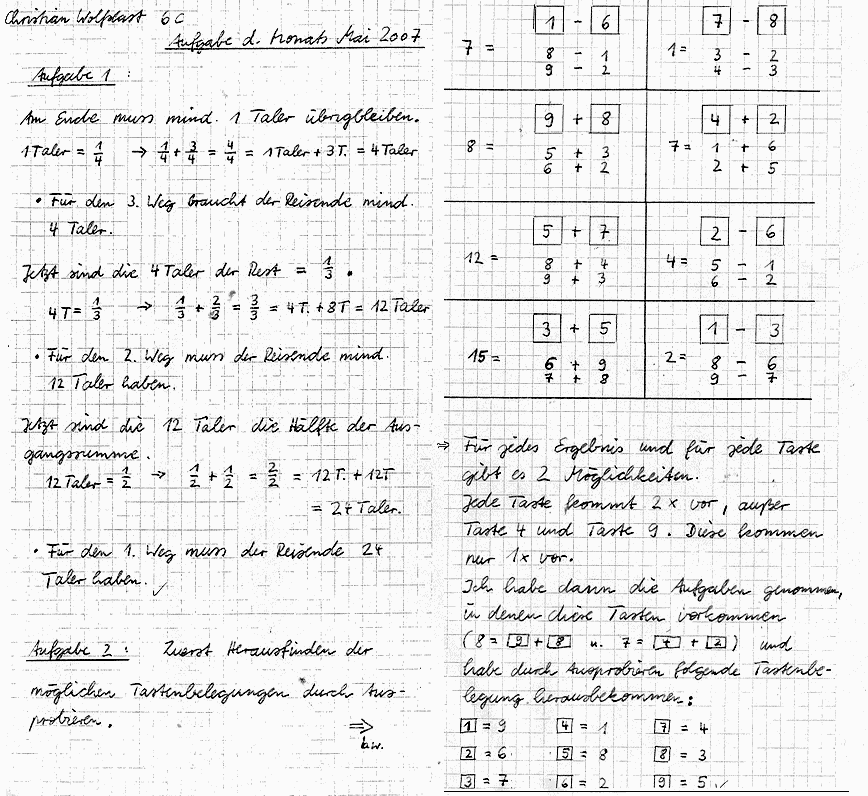 Christian Wolfplast 6c
Aufgabe d. Monats Mai 2007
Aufgabe 1:
Am Ende muss mind. 1 Taler übrigbleiben.
1 Taler = 1/4 → 1/4 + 3/4 = 4/4 = 1 Taler + 3T. = 4 Taler
• Für den 3. Weg braucht der Reisende mind.
4 Taler.
Jetzt sind die 4 Taler der Rest = 1/3.
4T = 1/3 → 1/3 + 2/3 = 3/3 = 4T. + 8T = 12 Taler
• Für den 2. Weg muss der Reisende mind.
12 Taler haben.
Jetzt sind die 12 Taler die Hälfte der Aus-
gangssumme.
12 Taler = 1/2 → 1/2 + 1/2 = 2/2 = 12T. + 12T
= 24 Taler.
• Für den 1. Weg muss der Reisende 24
Taler haben. ✓
Aufgabe 2: Zuerst Herausfinden der
möglichen Tastenbelegungen durch Aus-
probieren. ⇒
b.w.
7 = [1] - [6]
8 - 1
9 - 2
1 = [7] - [8]
3 - 2
4 - 3
8 = [9] + [8]
5 + 3
6 + 2
7 = [4] + [2]
1 + 6
2 + 5
12 = [5] + [7]
8 + 4
9 + 3
4 = [2] - [6]
5 - 1
6 - 2
15 = [3] + [5]
6 + 9
7 + 8
2 = [1] - [3]
8 - 6
9 - 7
⇒ Für jedes Ergebnis und für jede Taste
gibt es 2 Möglichkeiten.
Jede Taste kommt 2x vor, außer
Taste 4 und Taste 9. Diese kommen
nur 1x vor.
Ich habe dann die Aufgaben genommen,
in denen diese Tasten vorkommen
(8 = [9] + [8] u. 7 = [4] + [2]) und
habe durch Ausprobieren folgende Tastenbe-
legung herausbekommen:
[1] = 9 [4] = 1 [7] = 4
[2] = 6 [5] = 8 [8] = 3
[3] = 7 [6] = 2 [9] = 5 ✓